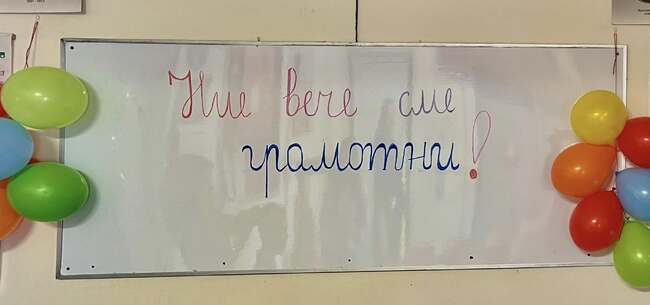 Ние вече сме
грамотни!